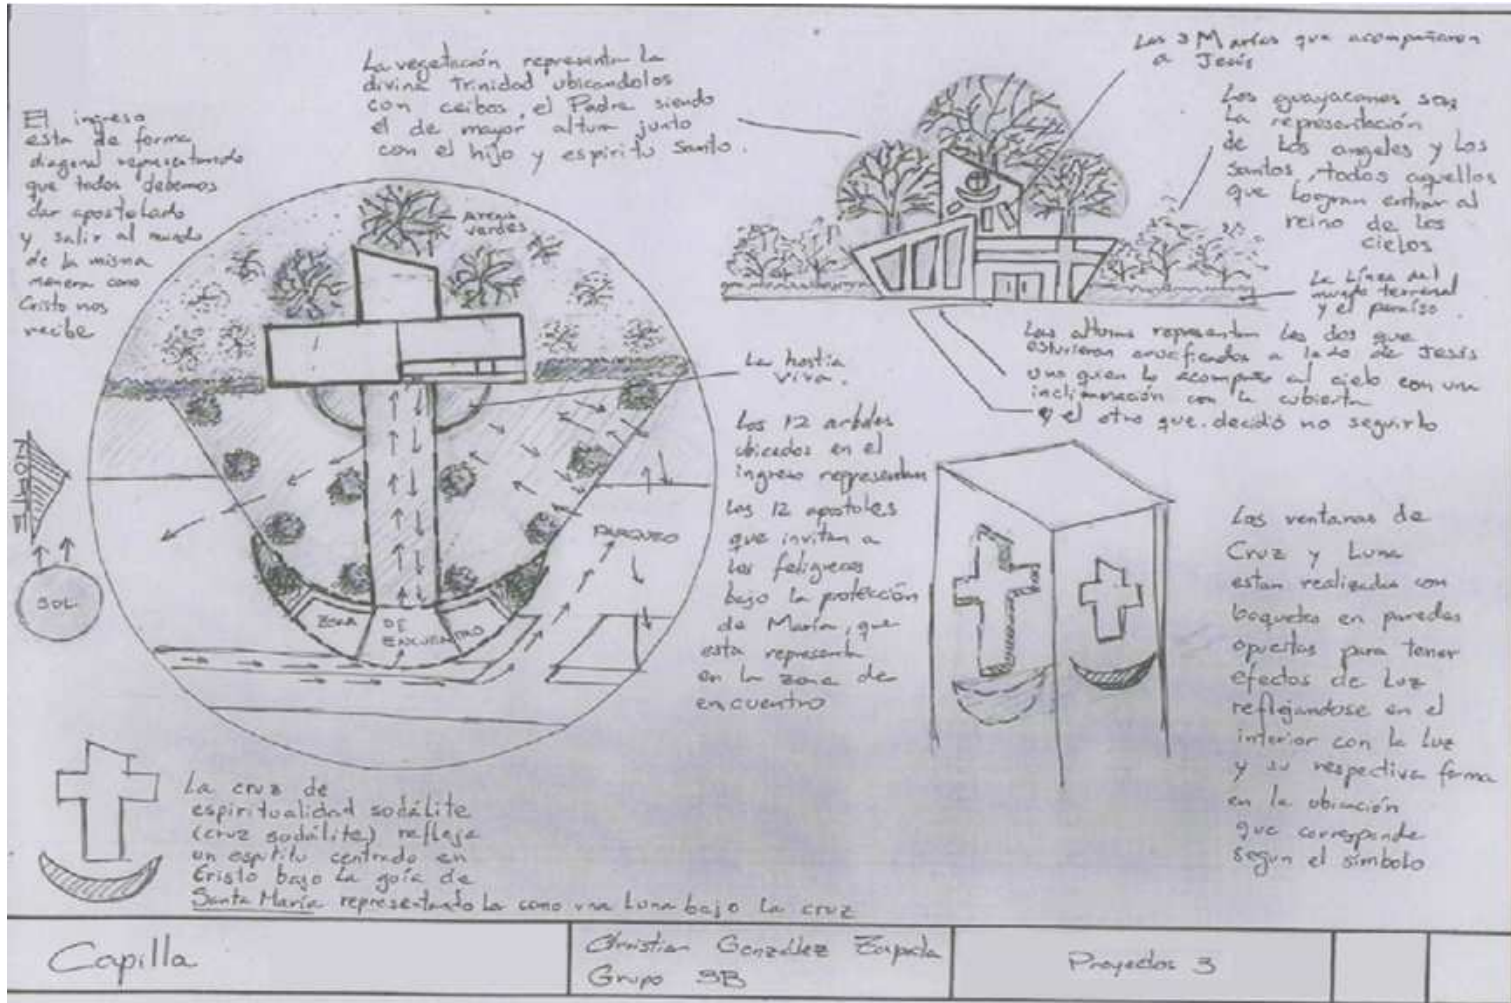 El ingreso
esta de forma
diagonal representando
que todos debemos
dar apostolado
y salir al mundo
de la misma
manera como
Cristo nos
recibe
La vegetación representa la
divina Trinidad ubicandolos
con ceibos, el Padre siendo
el de mayor altura junto
con el hijo y espiritu Santo.
Las 3 Marías que acompañaron
a Jesús
Los guayacanes son
la representación
de los angeles y los
Santos, todos aquellos
que logran entrar al
reino de los
cielos
La Línea del
mundo terrenal
y el paraíso.
Las alturas representan los dos que
estuvieron crucificados a lado de Jesús
uno quien lo acompaño al cielo con una
inclinación con la cubierta
y el otro que decidió no seguirlo
Areas
verdes
La hostia
viva.
Los 12 arboles
ubicados en el
ingreso representan
Los 12 apostoles
que invitan a
los feligreses
bajo la protección
de María, que
esta representa
en la zona de
encuentro
NORTE
SOL
PARQUEO
ZONA DE ENCUENTRO
Las ventanas de
Cruz y Luna
estan realizadas con
boquetes en paredes
opuestas para tener
efectos de Luz
reflejandose en el
interior con la luz
y su respectiva forma
en la ubicación
que corresponde
segun el símbolo
La cruz de
espiritualidad sodálite
(cruz sodálite) refleja
un espíritu centrado en
Cristo bajo la guía de
Santa María representando la como una luna bajo la cruz
Capilla
Christian González Zapata
Grupo 3B
Proyectos 3